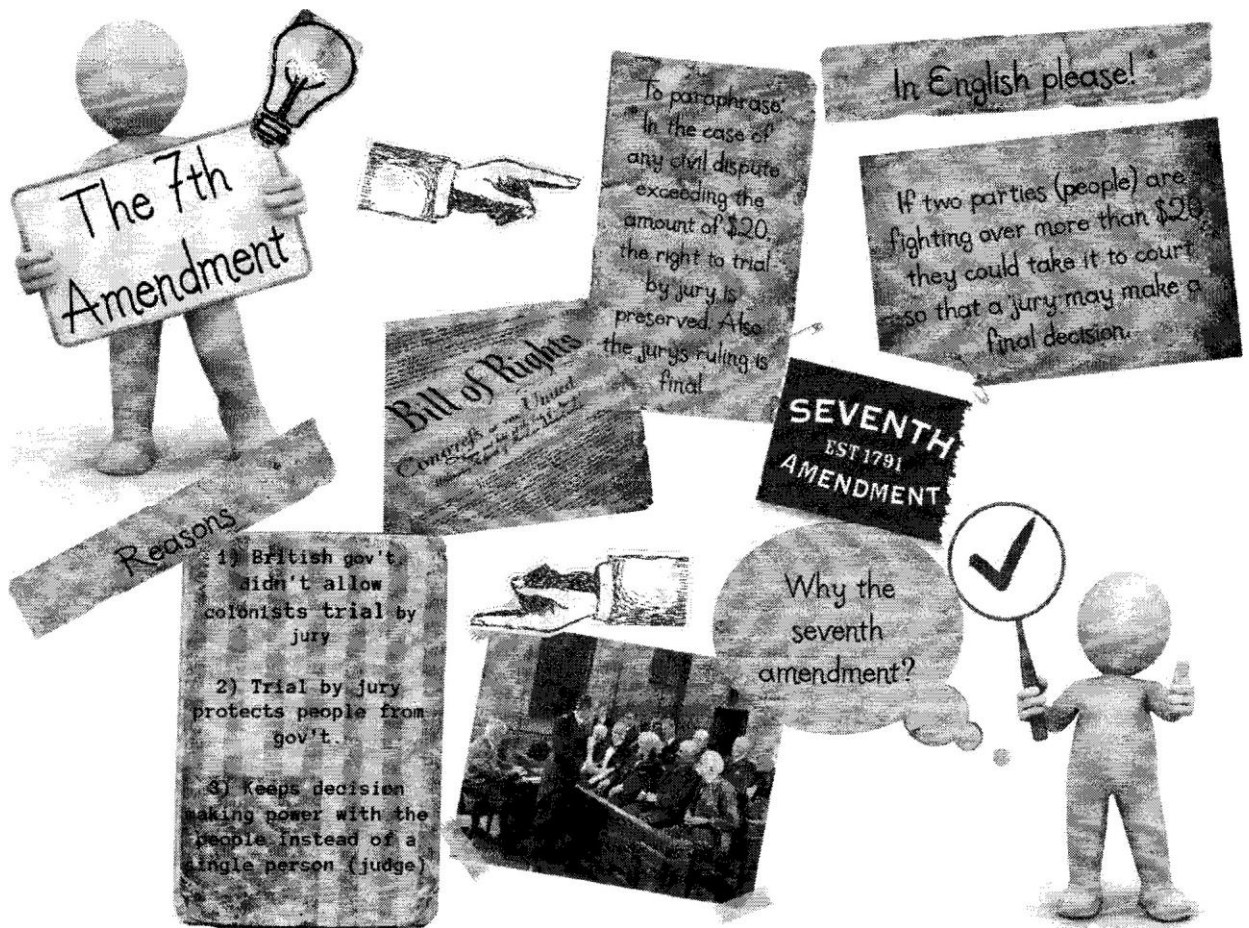 The 7th
Amendment
To paraphrase:
In the case of
any civil dispute
exceeding the
amount of $20,
the right to trial
by jury is
preserved. Also
the jurys ruling is
final
In English please!
If two parties (people) are
fighting over more than $20
they could take it to court
so that a jury may make a
final decision.
Bill of Rights
Congress of the United
SEVENTH
EST 1791
AMENDMENT
Reasons
1) British gov't
didn't allow
colonists trial by
jury
2) Trial by jury
protects people from
gov't.
3) Keeps decision
making power with the
people instead of a
single person (judge)
Why the
seventh
amendment?